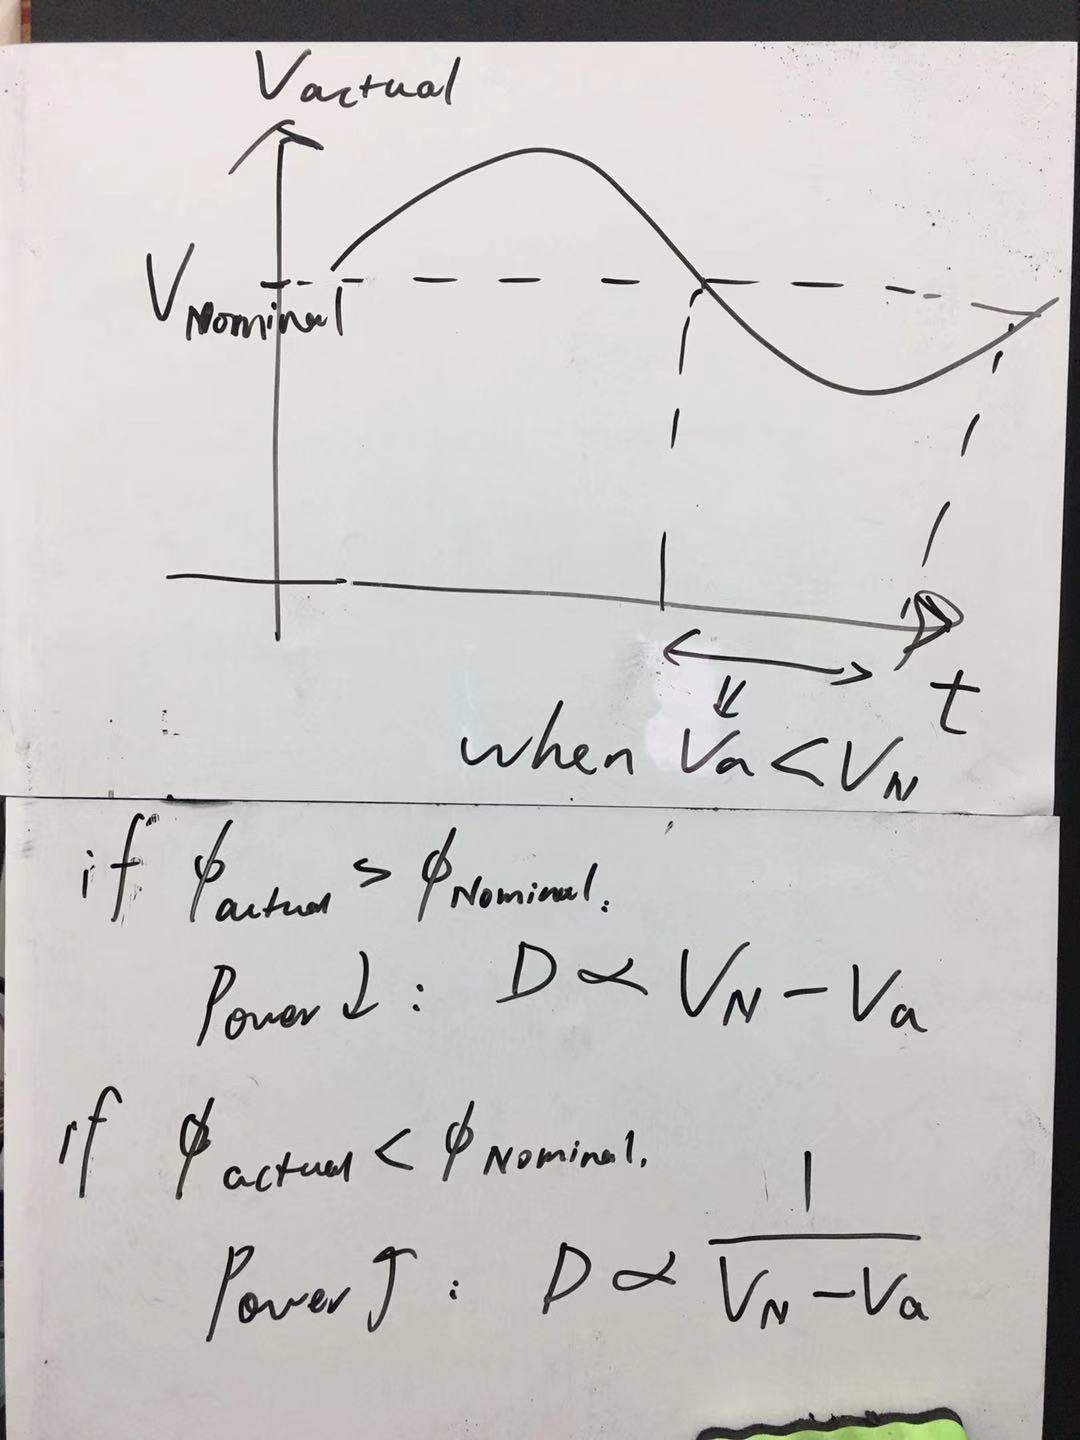 Vactual
VNominal
t
when Va < VN
if ϕactual > ϕNominal.
Power ↓ : D ∝ VN - Va
if ϕactual < ϕNominal.
Power ↑ : D ∝ 1
VN - Va